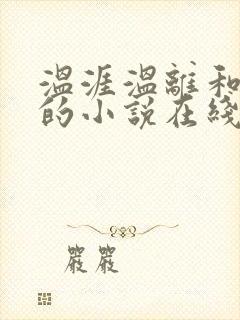 温涯温離和
的小説在綫
嚴嚴